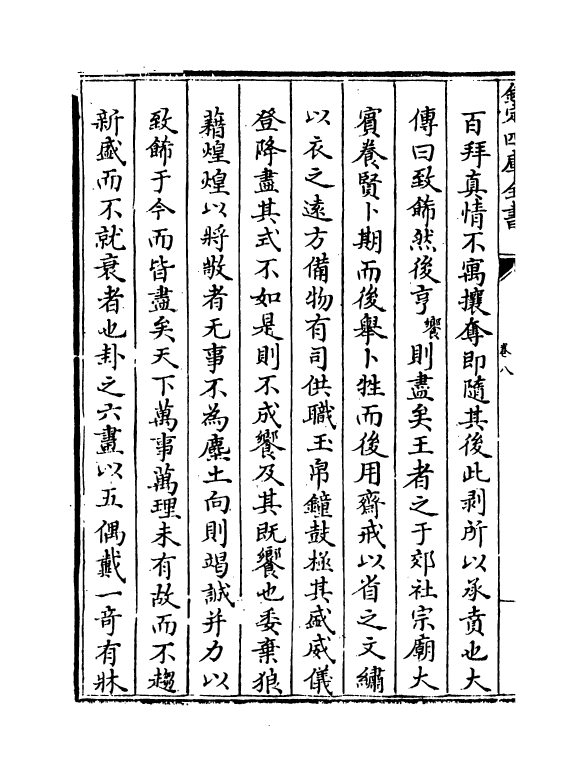 欽定四庫全書
卷八
百拜真情不寓攘奪即隨其後此剥所以承賁也大
傳曰致飾然後亨饗則盡矣王者之于郊社宗廟大
賓養賢卜期而後舉卜牲而後用齋戒以省之文繡
以衣之遠方備物有司供職玉帛鐘鼓極其盛威儀
登降盡其式不如是則不成饗及其既饗也委棄狼
藉煌煌以將敬者无事不為麋土向則竭誠并力以
致飾于今而皆盡矣天下萬事萬理未有故而不趨
新盛而不就衰者也卦之六畫以五偶戴一竒有牀